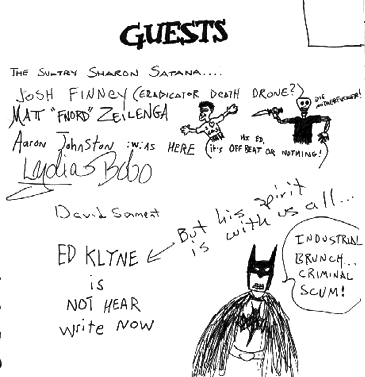 GUESTS
THE SULTRY SHARON SATANA....
JOSH FINNEY (ERADICATOR DEATH DRONE?)
MATT "FNORD" ZEILENGA
DIE
Aaron Johnston :was HERE
HI ED,
(it's OFF BEAT OR NOTHING!
Lydia Bobo
David Sorment
But his spirit
is with us all...
ED KLYNE
is
NOT HEAR
write NOW
INDUSTRIAL
BRUNCH...
CRIMINAL
SCUM!